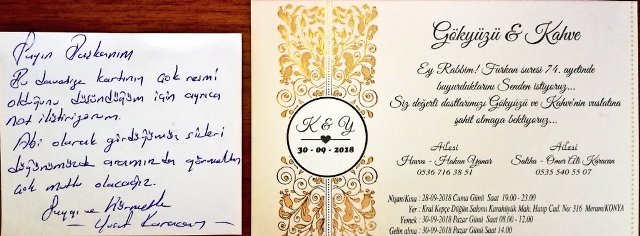 Sayın Başkanım
Bu davetiye kartının çok resmi
olduğunu düşündüğüm için ayrıca
not iliştiriyorum.
Abi olarak gördüğümüz sizleri
düğünümüzde aramızda görmekten
çok mutlu olacağız.
Saygı ve Hürmetle
Yusuf Karacan
K & Y
30 - 09 - 2018
Gökyüzü & Kahve
Ey Rabbim! Furkan suresi 74. ayetinde
buyurduklarını Senden istiyoruz...
Siz değerli dostlarımızı Gökyüzü ve Kahve'nin vuslatına
şahit olmaya bekliyoruz...
Ailesi
Havva - Hakan Yanar
0536 716 38 51
Ailesi
Saliha - Ömer Ali Karacan
0535 540 55 07
Nişan/Kına : 28-09-2018 Cuma Günü Saat 19.00 - 23.00
Yer : Kral Kepçe Düğün Salonu Karahüyük Mah. Hatıp Cad. No: 316 Meram/KONYA
Yemek : 30-09-2018 Pazar Günü Saat 08.00 - 12.00
Gelin alma : 30-09-2018 Pazar Günü Saat 14.00